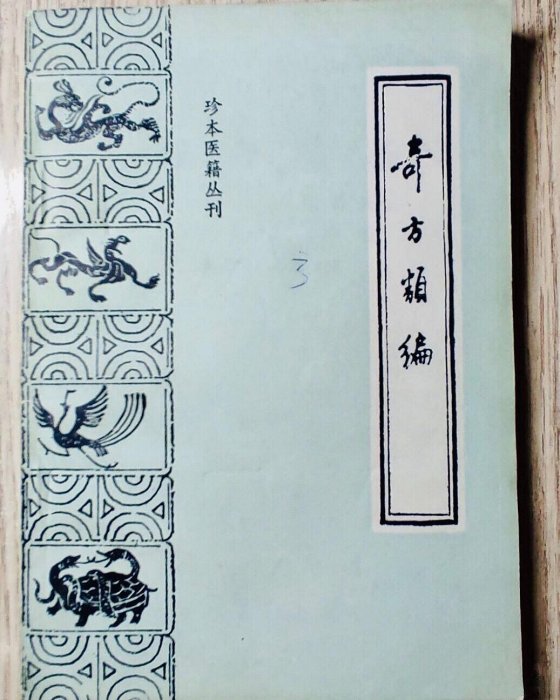 奇方類編
珍本医籍丛刊